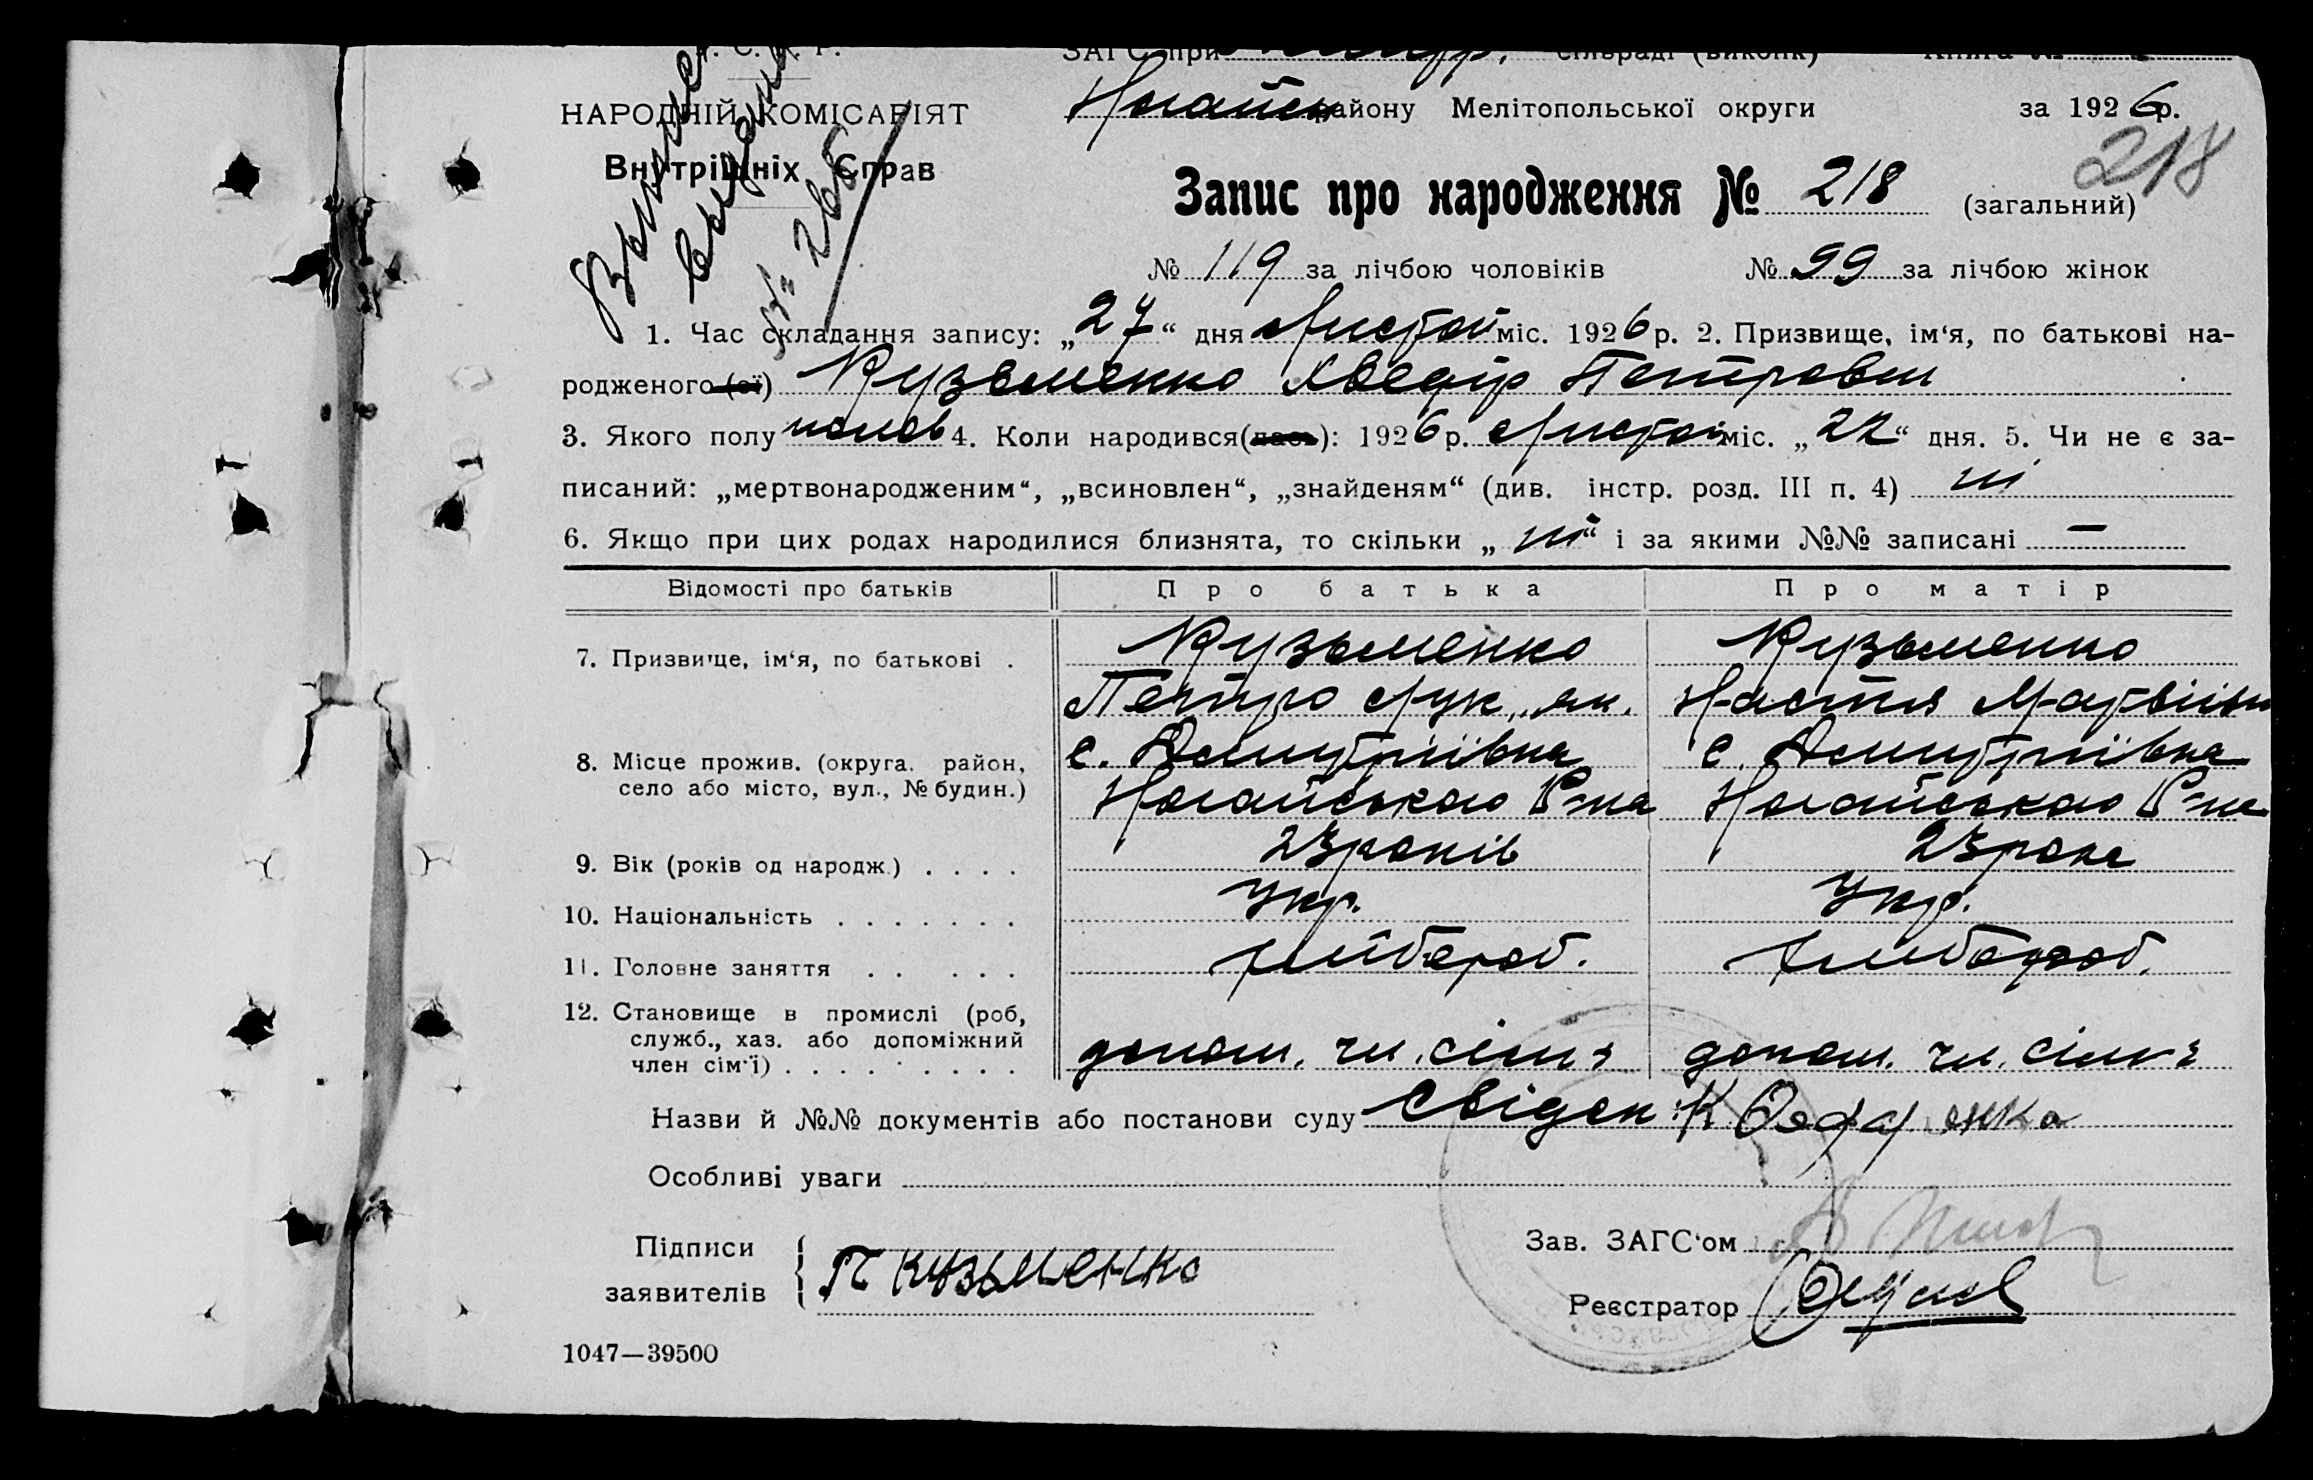 С. Р. Р.
ЗАГС при сільраді (виконк) Книга №
НАРОДНІЙ КОМІСАРІЯТ
Ногайськ району Мелітопольської округи за 1926 р.
Внутрішніх Справ
218
Запис про народження № 218 (загальний)
№ 119 за лічбою чоловіків № 99 за лічбою жінок
№ 265
1. Час складання запису: „27“ дня Листоп міс. 1926 р. 2. Призвище, ім‘я, по батькові на-
родженого (ої) Кузьменко Хведір Петрович
3. Якого полу чолов 4. Коли народився(лась): 1926 р. Листоп міс. „22“ дня. 5. Чи не є за-
писаний: „мертвонародженим“, „всиновлен“, „знайденям“ (див. інстр. розд. III п. 4) ні
6. Якщо при цих родах народилися близнята, то скільки „ні“ і за якими №№ записані —
Відомості про батьків Про батька Про матір
7. Призвище, ім‘я, по батькові . Кузьменко Кузьменко
Петро Лук‚‚ян. Настя Матвіївн
8. Місце прожив. (округа. район, с. Дмитріївка с. Дмитріївка
село або місто, вул., № будин.) Ногайського Р-на Ногайського Р-на
9. Вік (років од народж.) . . . . 23 років 23 роки
10. Національність . . . . . . . Укр. Укр.
11. Головне заняття . . . . . хлібороб. хлібороб.
12. Становище в промислі (роб,
служб., хаз. або допоміжний
член сім‘ї) . . . . . . . . . допом. чл. сім'ї допом. чл. сім'ї
Назви й №№ документів або постанови суду Свідок
Особливі уваги
Підписи Зав. ЗАГС‘ом
заявителів П Кузьменко
Реєстратор
1047—39500